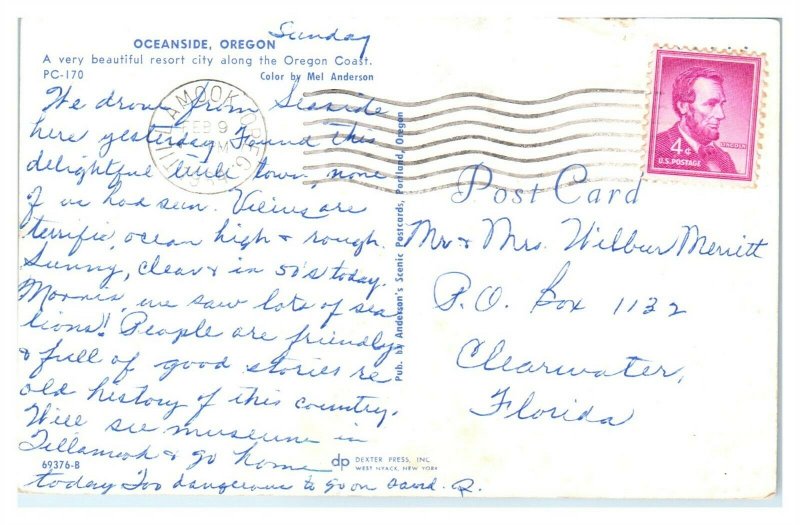 Sunday
OCEANSIDE, OREGON
A very beautiful resort city along the Oregon Coast.
PC-170 Color by Mel Anderson
We drove from Seaside
here yesterday. Found this
delightful little town, none
of us had seen. Views are
terrific, ocean high & rough.
Sunny, clear & in 50's today.
we saw lots of sea
lions! People are friendly
& full of good stories re
old history of this country.
Will see museum in
Tillamook & go home
today Too dangerous to go on
69376-B
TILLAMOOK OREG
FEB 9
4¢
LINCOLN
U.S. POSTAGE
Post Card
Mr & Mrs. Wilbur Merritt
P.O. Box 1132
Clearwater,
Florida
Pub. by Anderson's Scenic Postcards, Portland, Oregon
dp DEXTER PRESS, INC.
WEST NYACK, NEW YORK